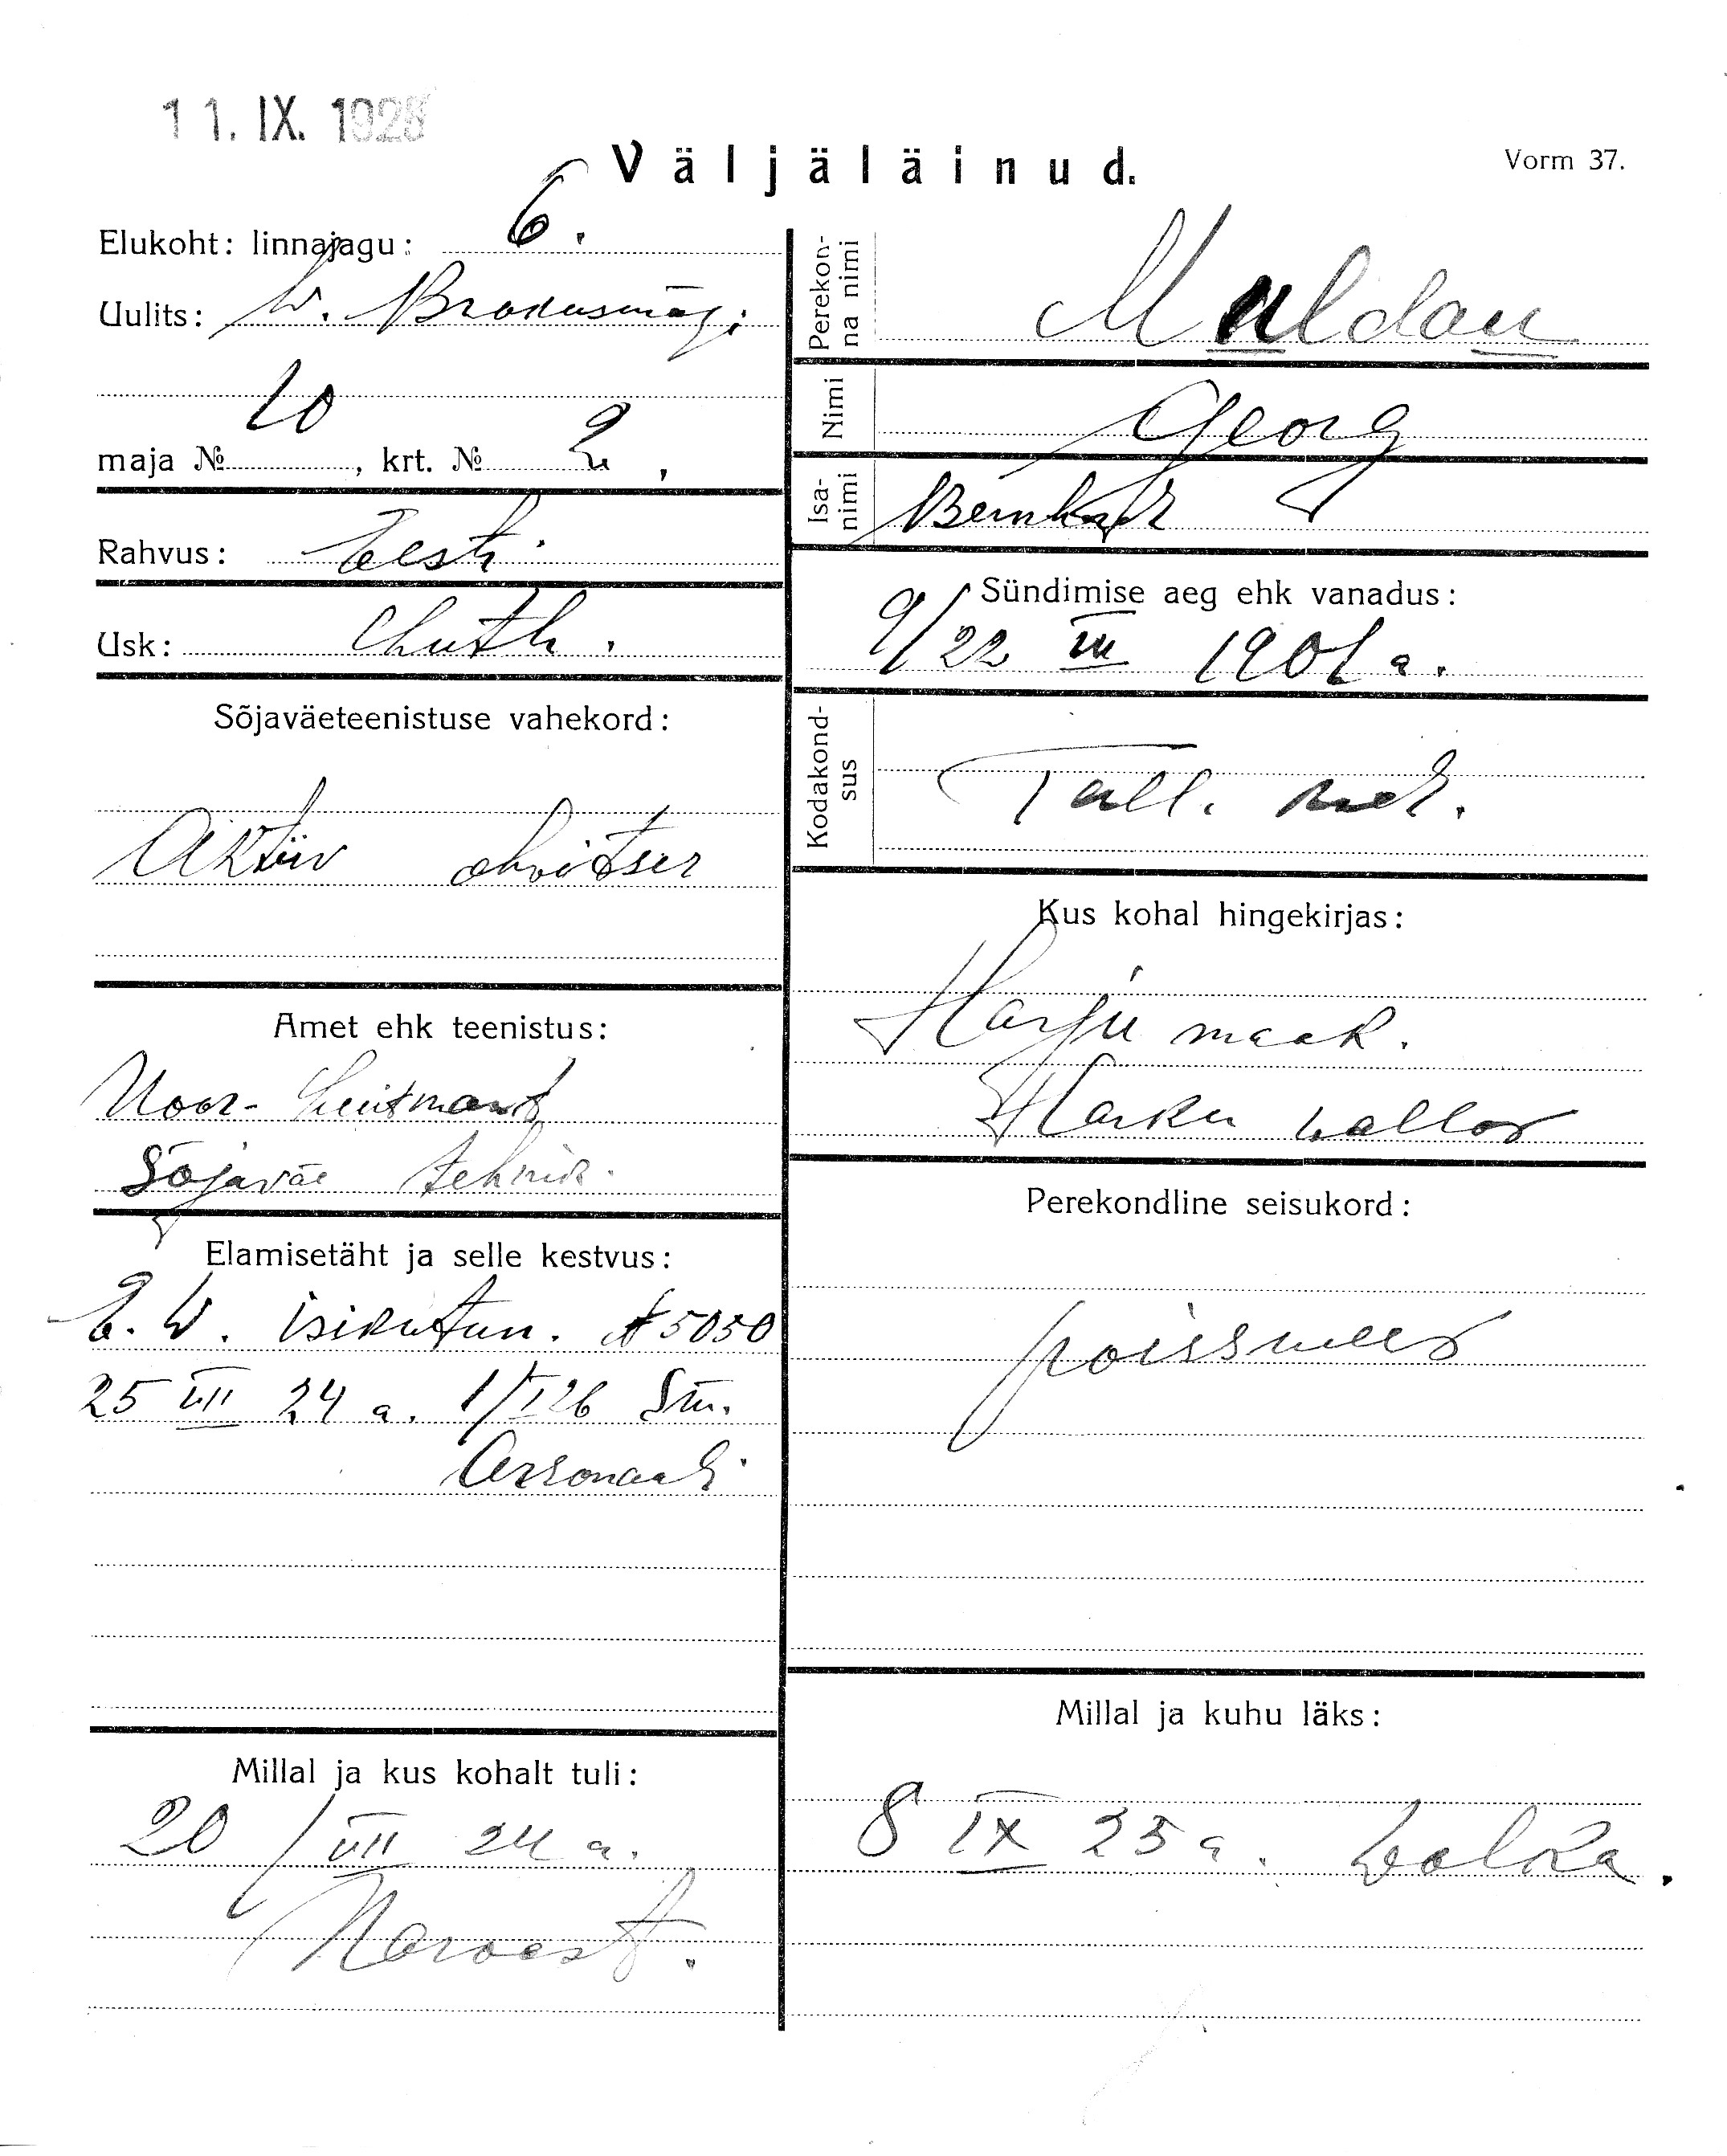 11. IX. 1925
Väljäläinud.
Vorm 37.
Elukoht: linnajagu: 6.
Uulits: W. Brokusmägi
maja № 10, krt. № 2.
Rahvus: Eesti
Usk: Luth.
Sõjaväeteenistuse vahekord:
Aktiiv ohvitser
Amet ehk teenistus:
Noor-leitnant
Sõjaväe tehnik.
Elamisetäht ja selle kestvus:
E. W. isikutun. № 5050
25 VII 24 a. 1/I 26
Arsenaali
Millal ja kus kohalt tuli:
20/VII 24 a.
Narvast.
Perekonna nimi
Muldau
Nimi
Georg
Isanimi
Bernhard
Sündimise aeg ehk vanadus:
9/22 III 1901 a.
Kodakondsus
Tall.
Kus kohal hingekirjas:
Harju maak.
Harku wallas
Perekondline seisukord:
poissmees
Millal ja kuhu läks:
8 IX 25 a. Walka.